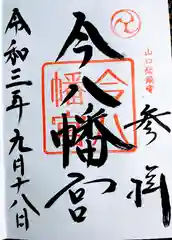 参拝
山口総鎮守
今八幡宮
今八幡宮
令和三年九月十八日